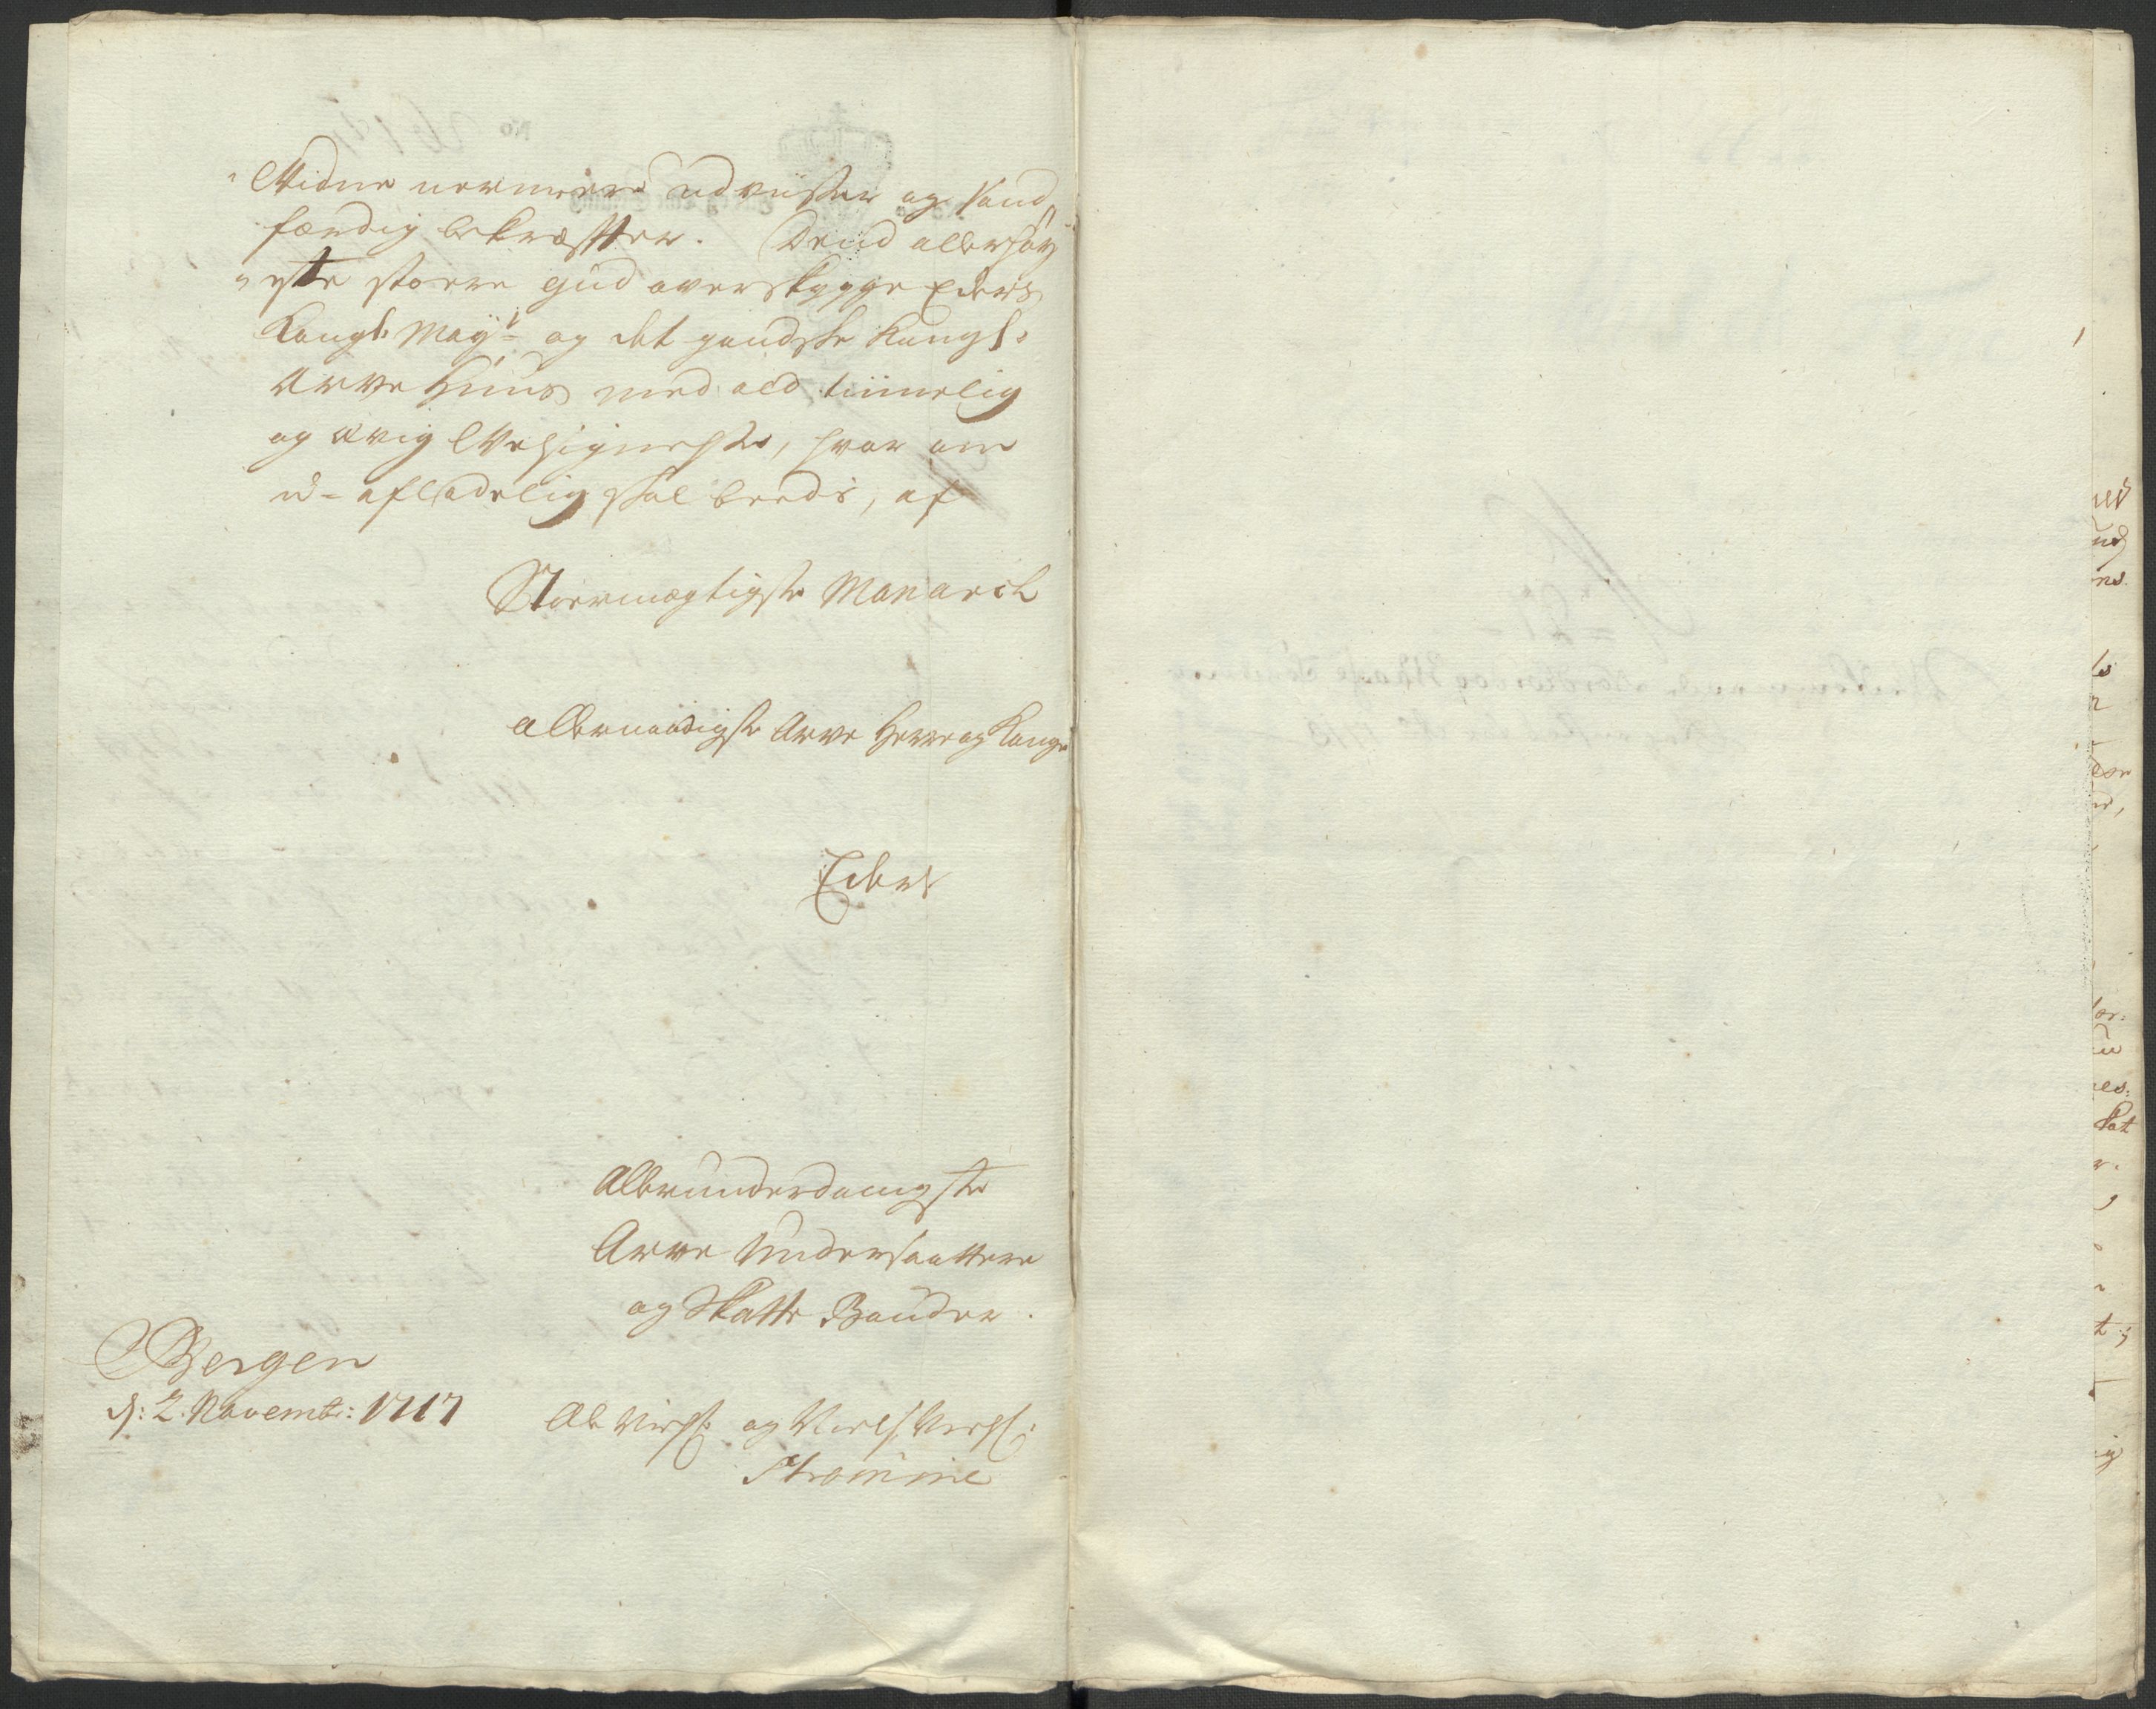 Vidne nermere udviiser og Sand„
færdig bekræffter. Dend allerhöy„
„ste store Gud overskygge Eders
Kongl: May:t og det gandske Kongl:
Arve Huus med ald timmelig
og Ævig Velsignelse, hvor om
u-afladelig skal beedis, af
Stormægtigste Monarch
allernaadigste Arve Herre og Konge
Eders
Allerunderdanigste
Arve Undersaattere
og Skatte Bønder.
Bergen
d: 2. Novembr: 1717
og
Strømme